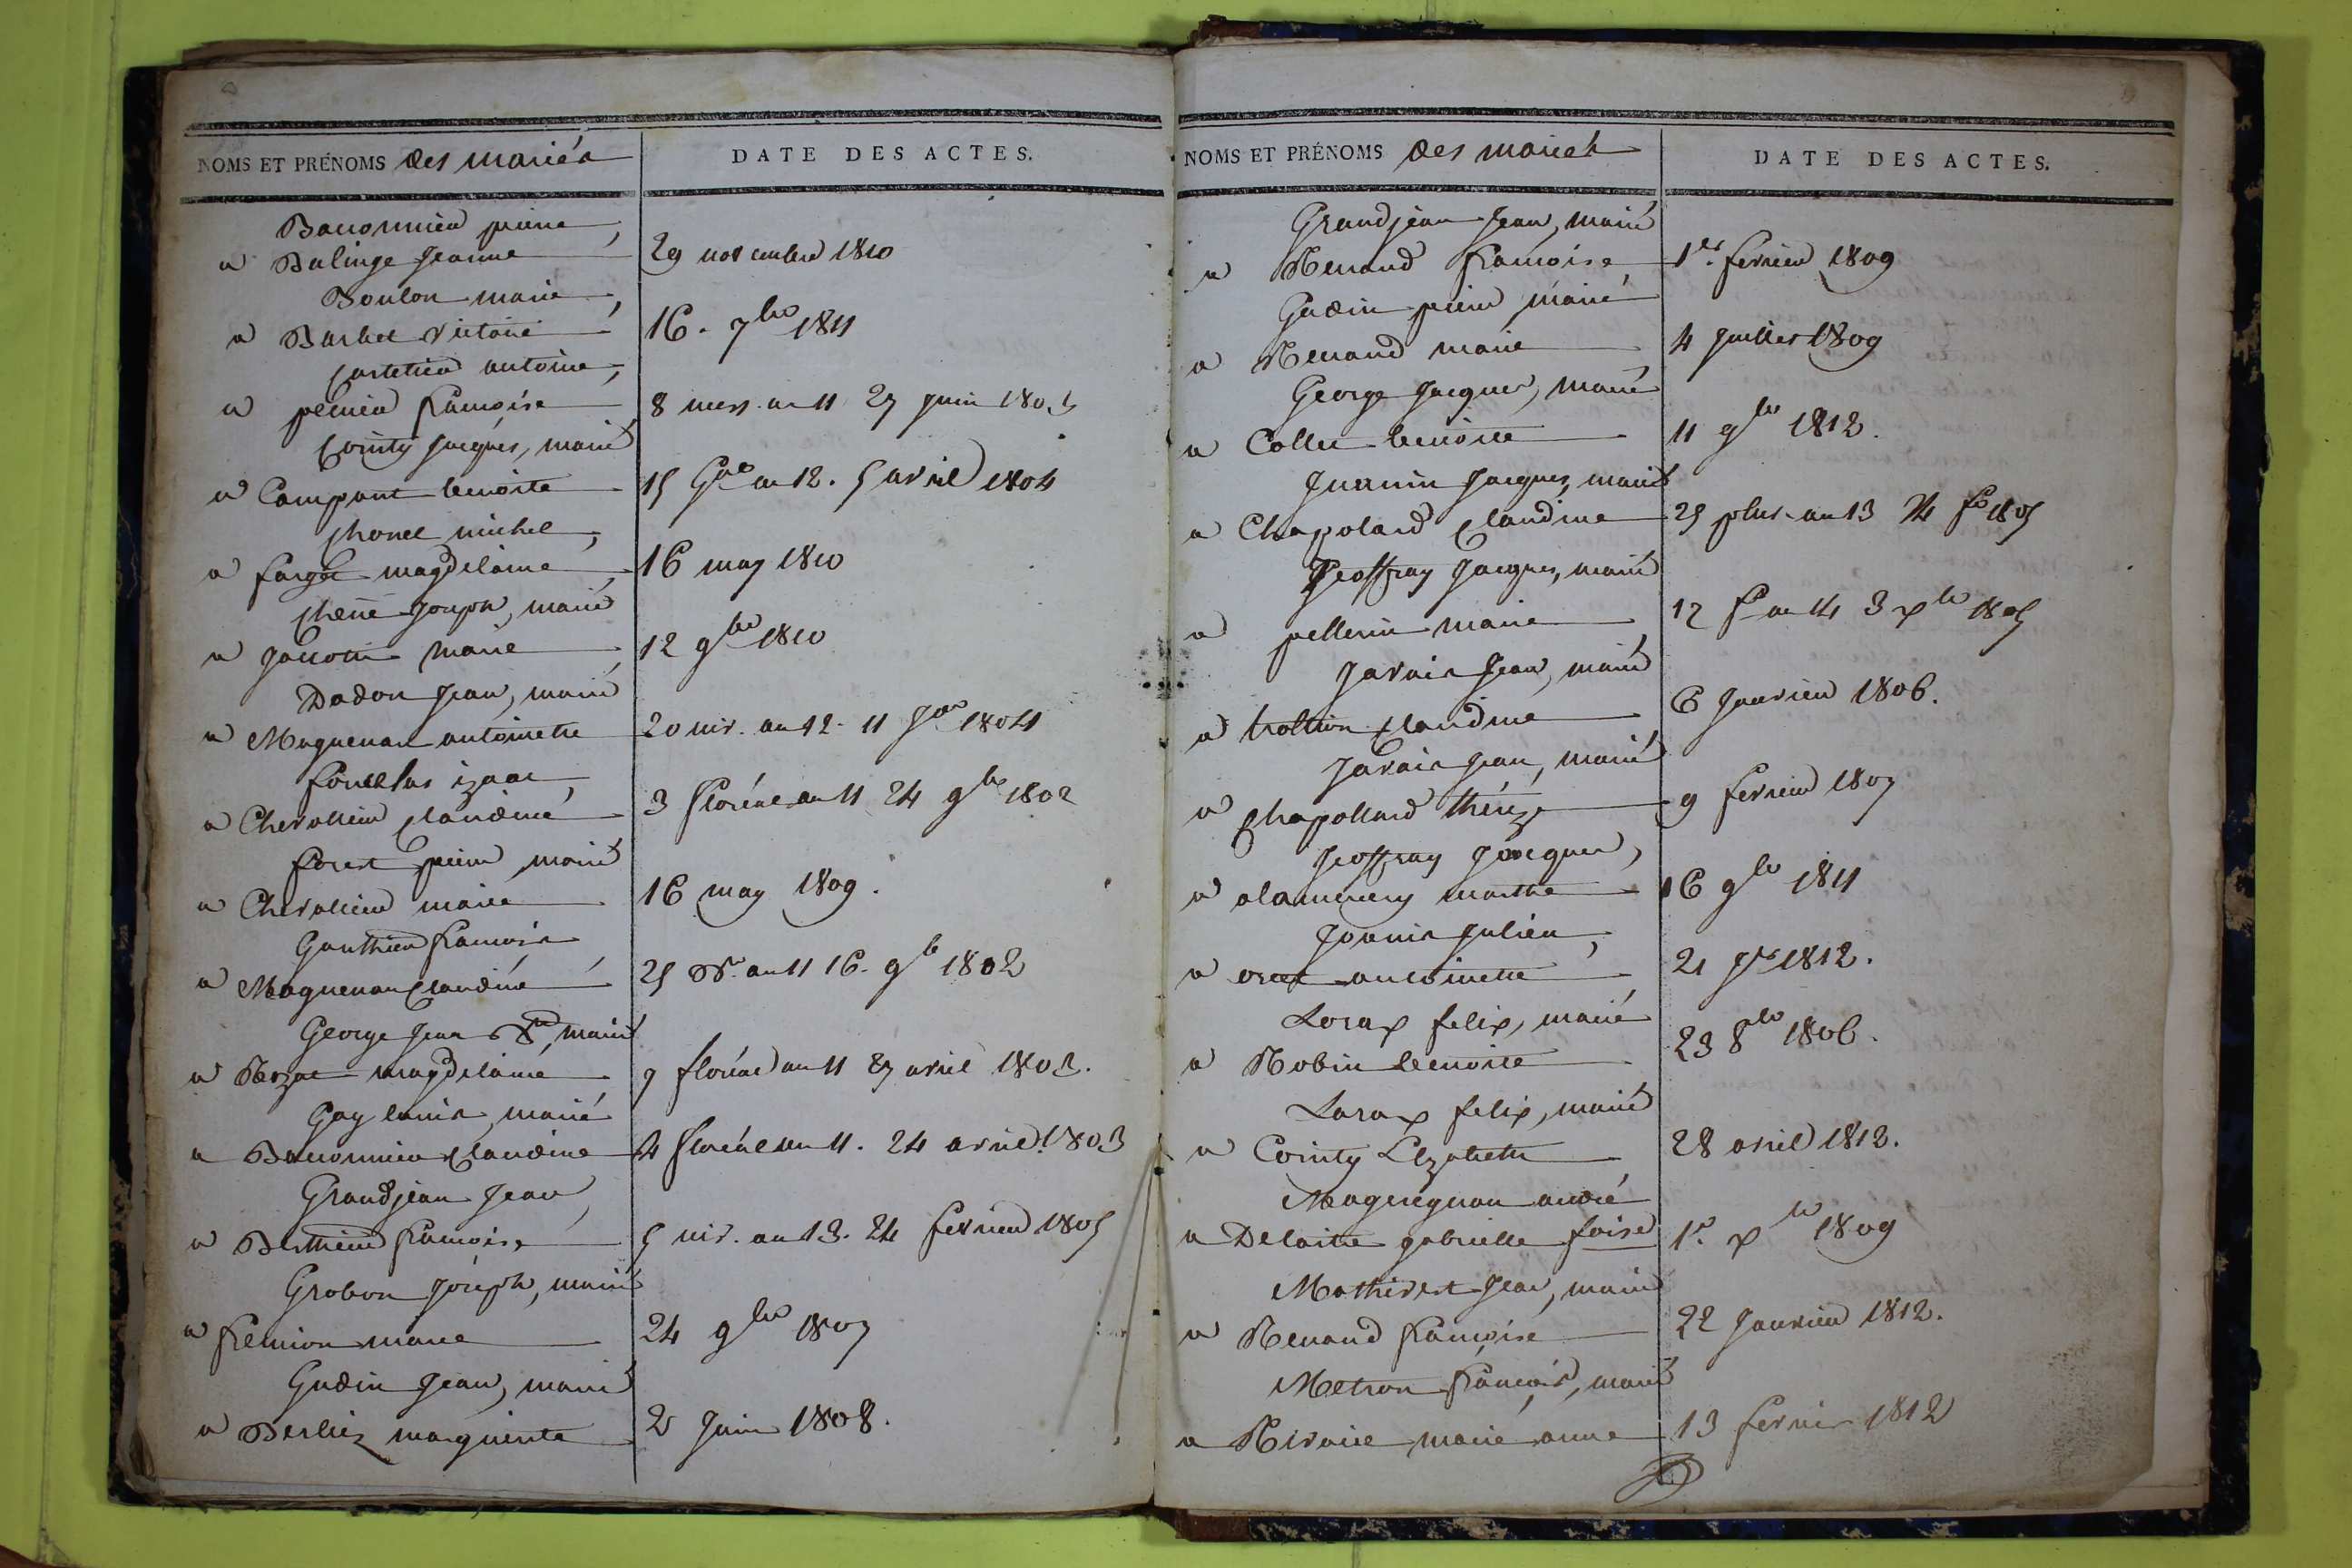 NOMS ET PRÉNOMS des mariés
DATE DES ACTES.
pierre,
a Balinge Jeanne
29 novembre 1810
Boulon marie,
a Barbet victoire
16. 7bre 1811
antoine,
a perrier francoise
8 mess. an 11 27 juin 1803
Cointy Jacques, marié
a Campant benoite
15 Gal an 12. 5 avril 1804
Chonel michel,
a farge magdelaine
16 may 1810
Joseph, marié
a marie
12 9bre 1810
Dadon Jean, marié
a Maguenan antoinette
20 niv. an 12. 11 Jer 1804
izaac,
a Chevallier Claudine
3 floréal an 11 24 9bre 1802
forest pierre marié
a Chevallier marie
16 may 1809.
Gauthier francois,
a Maguenan Claudine
25 an 11 16. 9b 1802
George Jean Bte, marié
a magdelaine
9 floréal an 11 27 avril 1803.
Gay louis, marié
a Claudine
4 floréal an 11. 24 avril 1803
Grandjean Jean,
a Berthier francoise
5 niv. an 13. 24 fevrier 1805
Grobon Joseph, marié
a fremion marie
24 9bre 1807
Gudin Jean, marié
a Berliez marguerite
2 Juin 1808.
NOMS ET PRÉNOMS des mariés
DATE DES ACTES.
Grandjean Jean, marié
a Renaud francoise
1er. fevrier 1809
Gudin pierre marié
a Renaud marie
4 Juillet 1809
George Jacques, marié
a Collet benoite
11 9bre 1812.
Jacques, marié
a Chapolard Claudine
25 pluv. an 13 14 fer 1805
Geoffray Jacques, marié
a pellerin marie
12 f an 14 3 xbre 1805
Jarvais Jean, marié
a trollion Claudine
6 Janvier 1806.
Jarvais Jean, marié
a Chapollard thérèze
9 fevrier 1807
Jeoffray Jacques,
a alamercery marthe
16 9bre 1811
Jounis Julien,
a antoinette
21 Jer 1812.
Lorax felix, marié
a Robin benoite
23 8bre 1806.
Larax felix, marié
a Cointy Elzabeth
28 avril 1812.
andré
a Delaitre gabrielle foise
1er. xbre 1809
Mathivet Jean, marié
a Renaud francoise
22 Janvier 1812.
Metron françois, marié
a marie anne
13 fevrier 1812